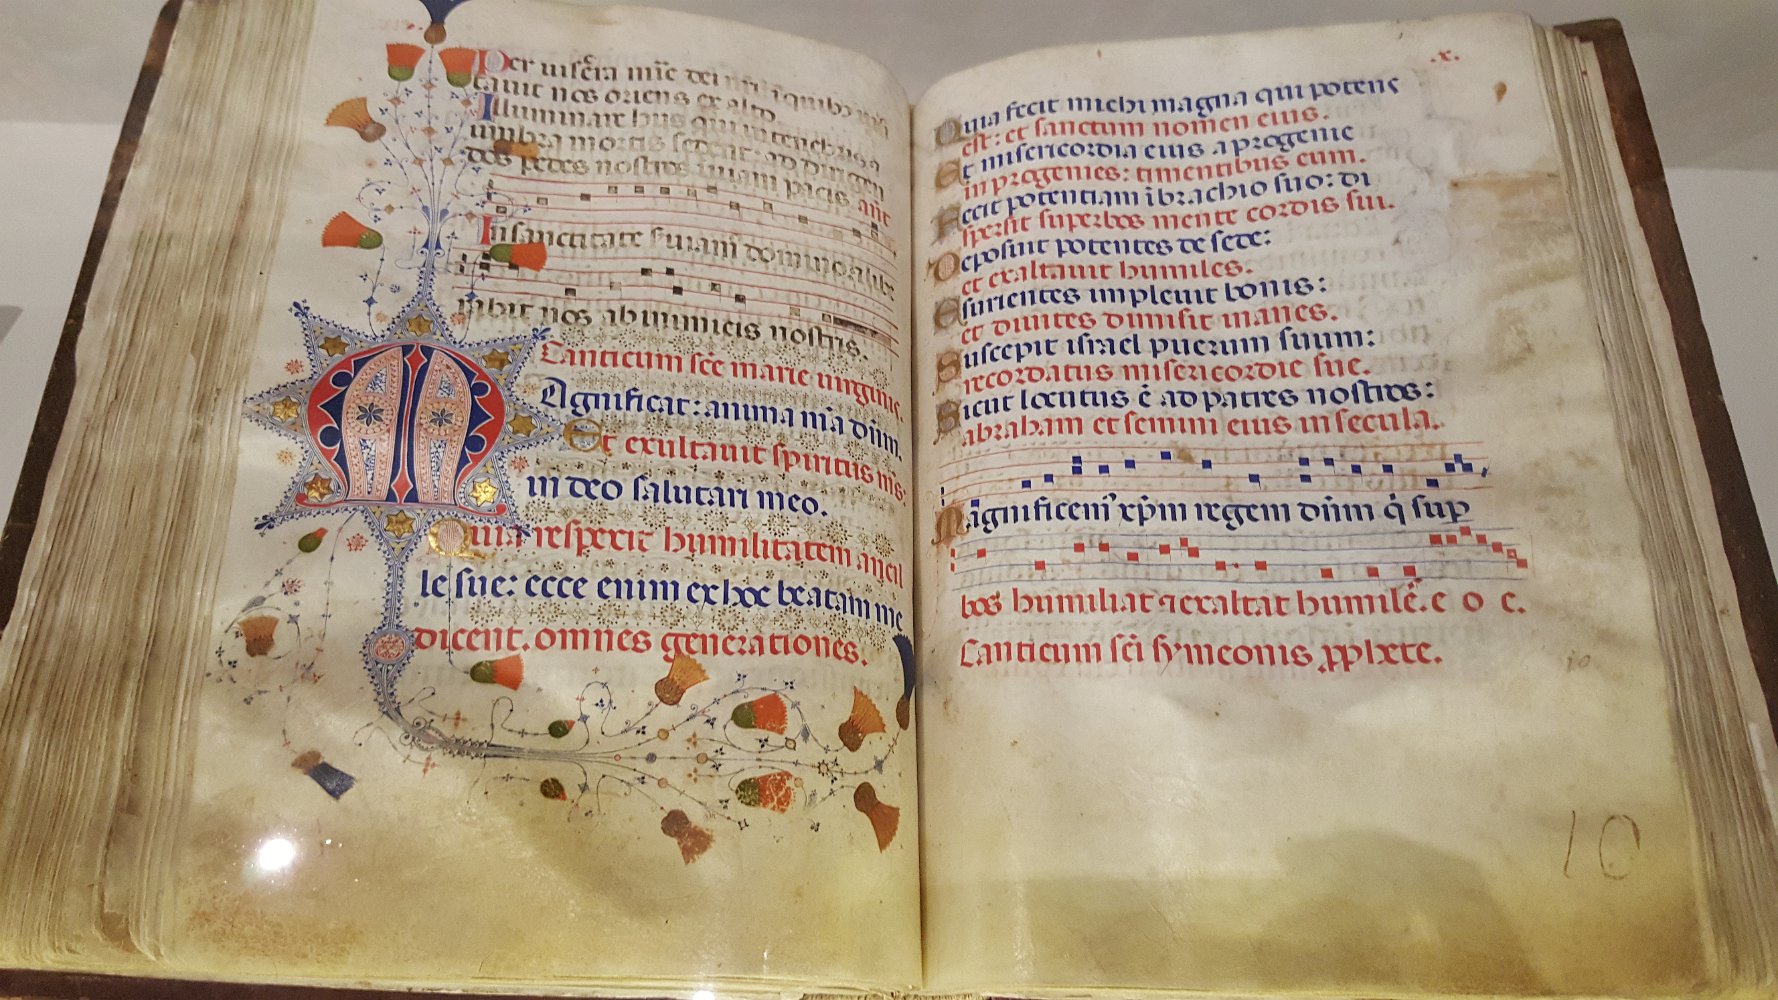 Per uiscera mīe dei nr̄i: ī quibꝫ uisi
tauit nos oriens ex alto.
Illuminare hys qui in tenebris ⁊ ī
umbra mortis sedent: ad dirigen
dos pedes nostros in uiam pacis. an̄t
In sanctitate seruiam? domino ⁊ libe
rabit nos ab inimicis nostris.
Canticum sc̄e marie uirginis.
Magnificat: anima m̄a dūm.
Et exultauit spiritus m̄s
in deo salutari meo.
Quia respexit humilitatem ancil
le sue: ecce enim ex hoc beatam me
dicent. omnes generationes.
.x.
Quia fecit michi magna qui potens
est: et sanctum nomen eius.
Et misericordia eius a progenie
in progenies: timentibus eum.
Fecit potentiam ī brachio suo: di
spersit superbos mente cordis sui.
Deposuit potentes de sede:
et exaltauit humiles.
Esurientes impleuit bonis:
et diuites dimisit inanes.
Suscepit israel puerum suum:
recordatus misericordie sue.
Sicut locutus ē ad patres nostros:
abraham et semini eius in secula.
Magnificem' xp̄m regem dūm q̄ sup
bos humiliat ⁊ exaltat humiles. e o e.
Canticum sc̄i symeonis ꝓphete.
10
10